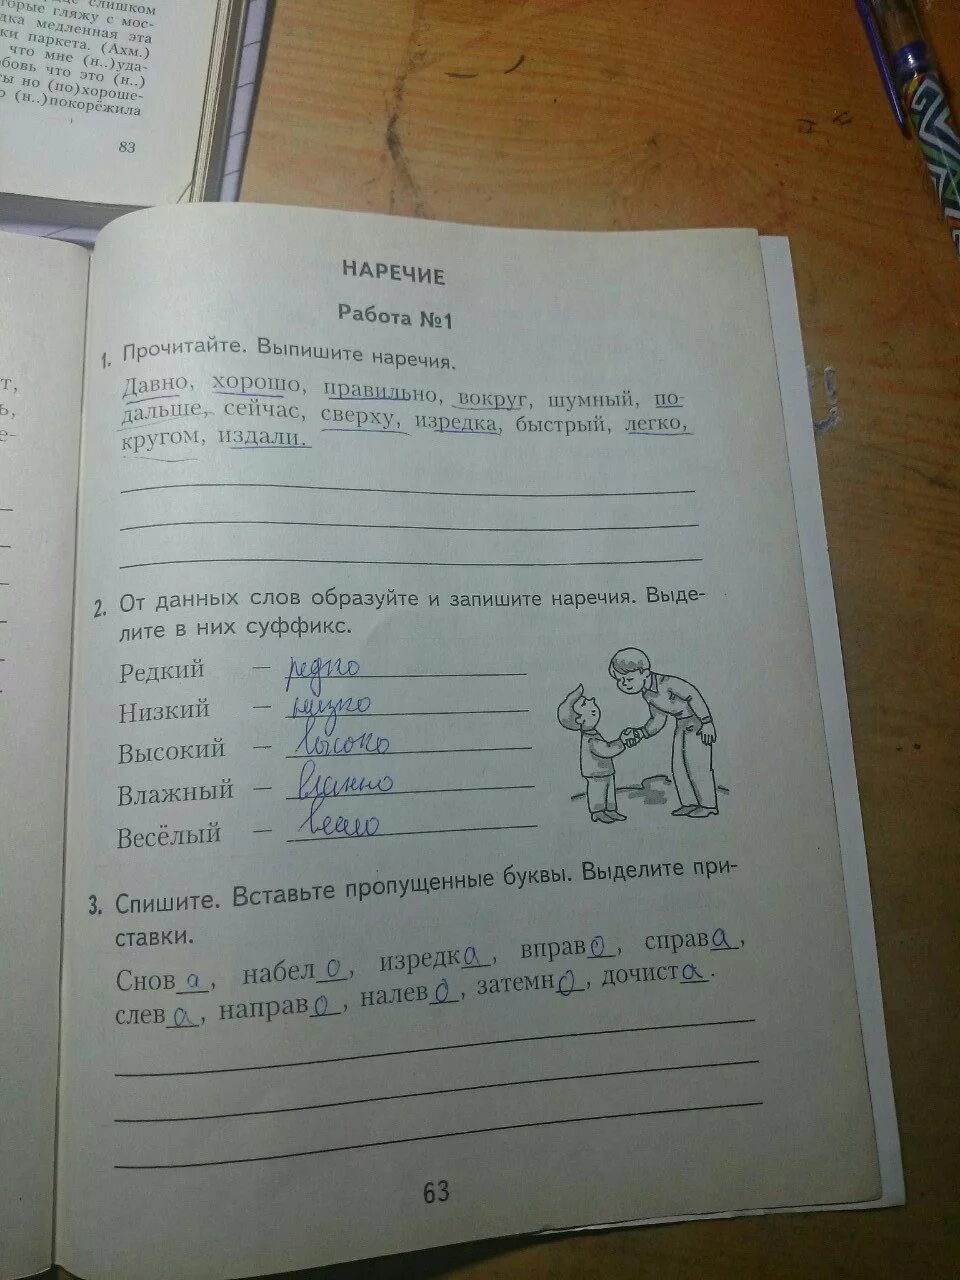 слишком
оторые гляжу с мос-
дка медленная эта
ки паркета. (Ахм.)
что мне (н..)уда-
бовь что это (н..)
ты но (по)хороше-
о (н..)покорёжила
83
т,
ь,
е-
НАРЕЧИЕ
Работа №1
1. Прочитайте. Выпишите наречия.
Давно, хорошо, правильно, вокруг, шумный, по-
дальше, сейчас, сверху, изредка, быстрый, легко,
кругом, издали.
2. От данных слов образуйте и запишите наречия. Выде-
лите в них суффикс.
Редкий — редко
Низкий — низко
Высокий — высоко
Влажный — влажно
Весёлый — весело
3. Спишите. Вставьте пропущенные буквы. Выделите при-
ставки.
Снов_а_, набел_о_, изредк_а_, вправ_о_, справ_а_,
слев_а_, направ_о_, налев_о_, затемн_о_, дочист_а_.
63